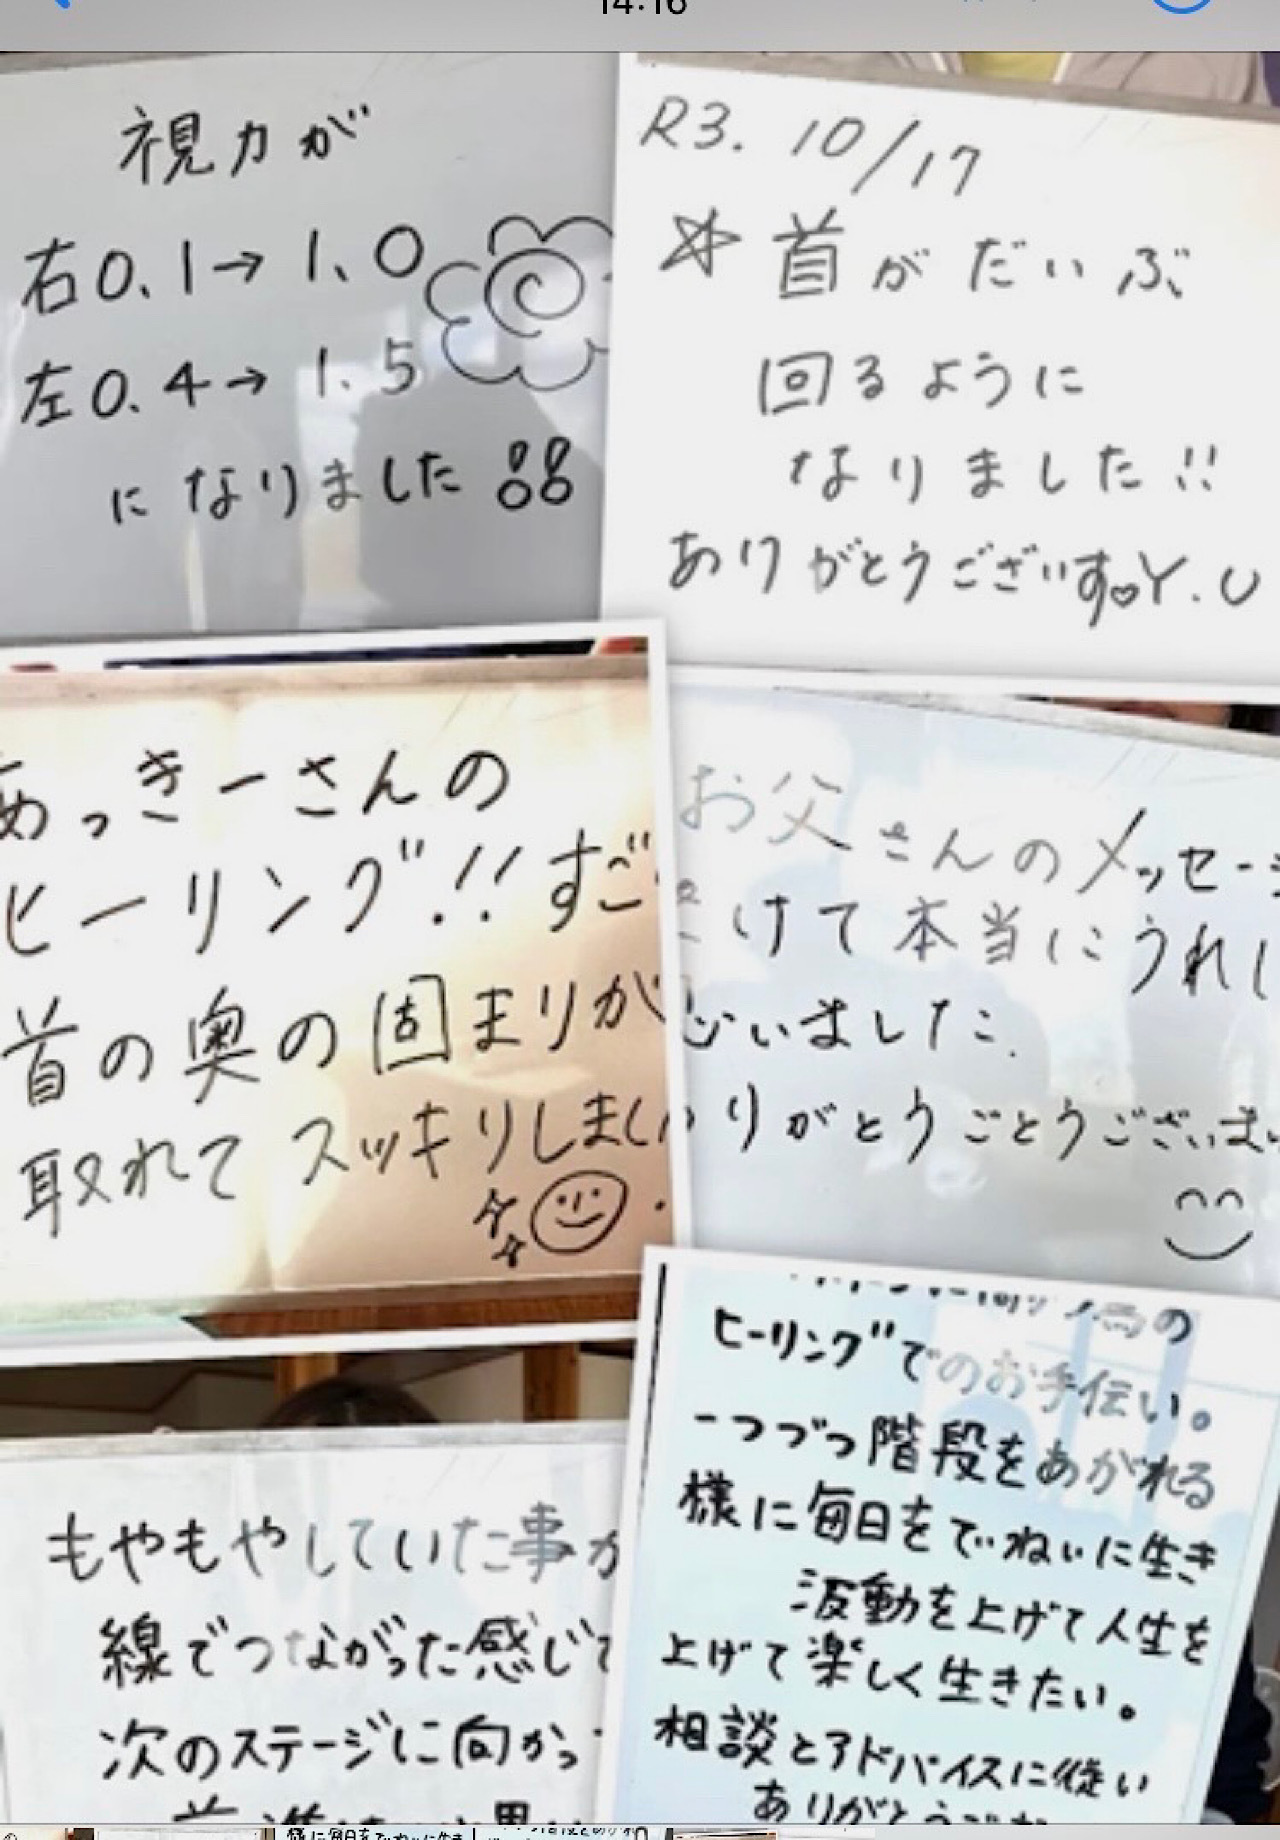 14:16
視力が
右0.1→1.0
左0.4→1.5
になりました
R3. 10/17
首がだいぶ
回るように
なりました!!
ありがとうございます Y.U
あっきーさんの
ヒーリング!! すご
首の奥の固まりが
取れてスッキリしまし
お父さんのメッセージ
けて本当にうれし
いました.
りがとうごとうございま
もやもやしていた事が
線でつながった感じで
次のステージに向かっ
の
ヒーリングでのお手伝い。
一つづつ階段をあがれる
様に毎日をていねいに生き
波動を上げて人生を
上げて楽しく生きたい。
相談とアドバイスに従い
ありがとうござ
様に毎日をていねいに生き